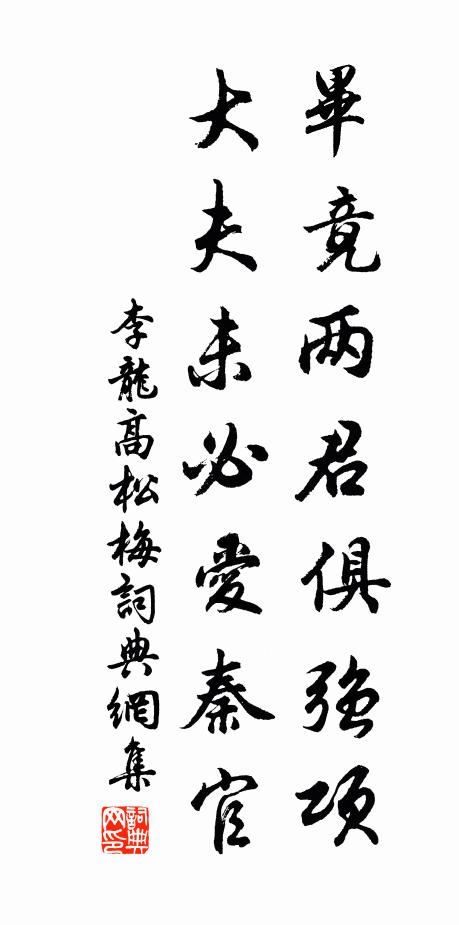 畢竟两君俱强項
大夫未必愛秦官
李龍高松梅詞典網集
詞典网印